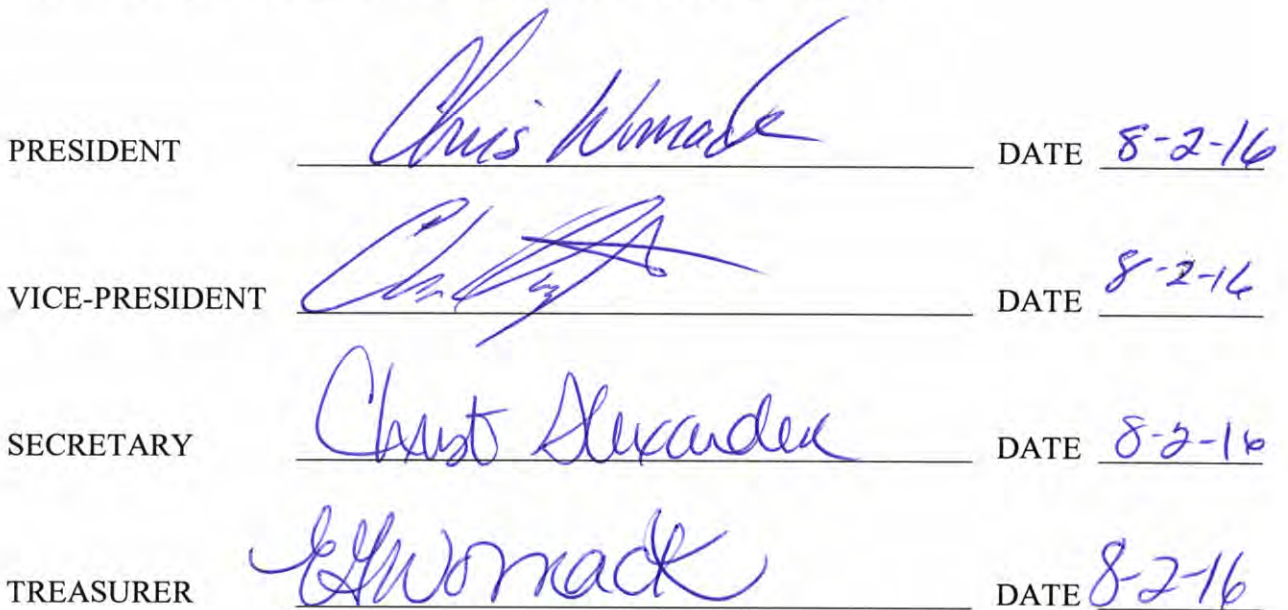 PRESIDENT Chris Womack DATE 8-2-16
VICE-PRESIDENT DATE 8-2-16
SECRETARY Christ Alexander DATE 8-2-16
TREASURER Womack DATE 8-2-16